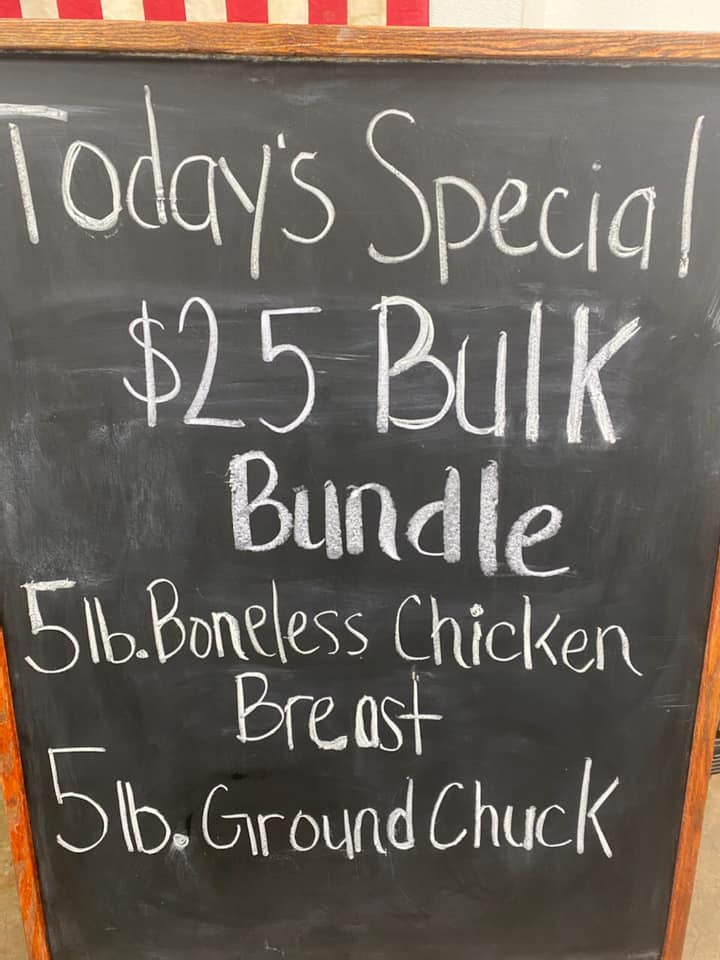 Today's Special
$25 Bulk
Bundle
5lb. Boneless Chicken
Breast
5lb. Ground Chuck